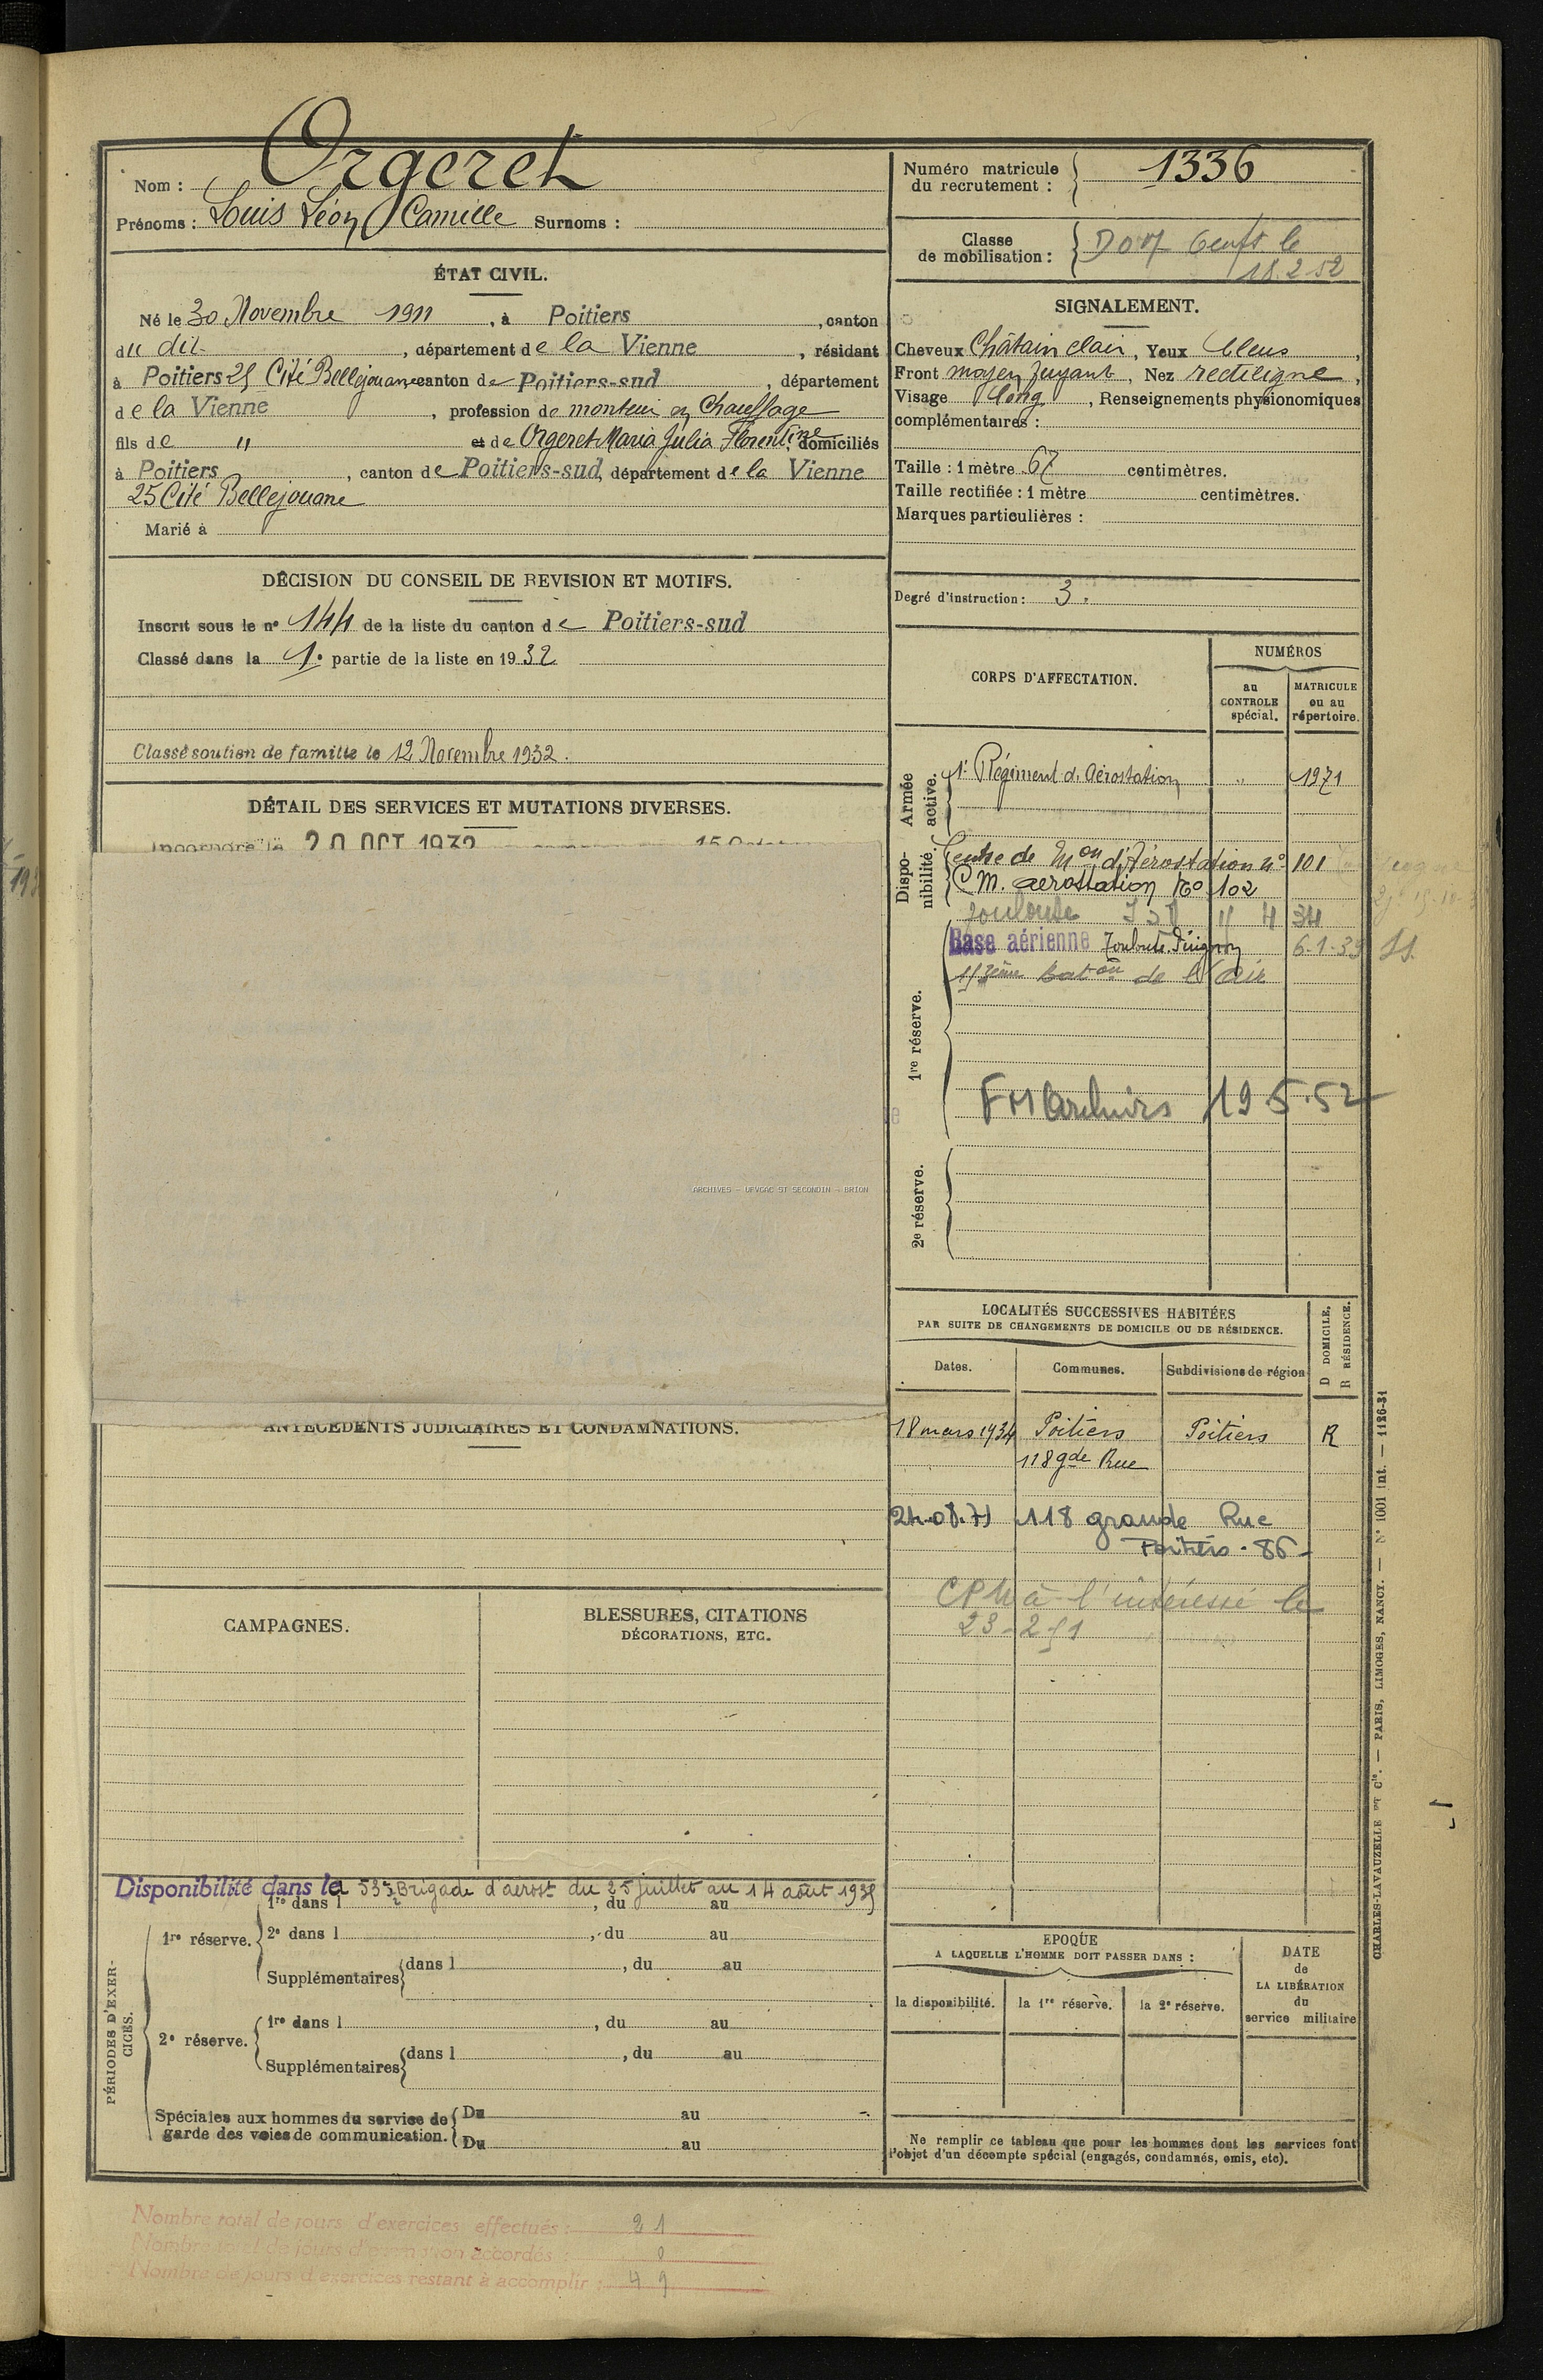 Nom : Orgeret
Prénoms : Louis Léon Camille Surnoms :
ÉTAT CIVIL.
Né le 30 Novembre 1911, à Poitiers, canton
du dit, département de la Vienne, résidant
à Poitiers 25 Cité Bellejouane canton de Poitiers-sud, département
de la Vienne, profession de monteur en Chauffage
fils de " et de Orgeret Maria Julia Florentine, domiciliés
à Poitiers, canton de Poitiers-sud, département de la Vienne
25 Cité Bellejouane
Marié à
DÉCISION DU CONSEIL DE REVISION ET MOTIFS.
Inscrit sous le nº 144 de la liste du canton de Poitiers-sud
Classé dans la 1e partie de la liste en 1932
Classé soutien de famille le 12 Novembre 1932.
DÉTAIL DES SERVICES ET MUTATIONS DIVERSES.
Incorporé le 20 OCT 1932
ARCHIVES - UFVGAC ST SECONDIN - BRION
ANTÉCÉDENTS JUDICIAIRES ET CONDAMNATIONS.
CAMPAGNES.
BLESSURES, CITATIONS
DÉCORATIONS, ETC.
Disponibilité dans la 53e Brigade d'aérost du 25 juillet au 14 août 1935
PÉRIODES D'EXERCICES.
1re réserve.
1re dans l, du au
2e dans l, du au
Supplémentaires dans l, du au
2e réserve.
1re dans l, du au
Supplémentaires dans l, du au
Spéciales aux hommes du service de
garde des voies de communication.
Du au
Du au
Nombre total de jours d'exercices effectués : 21
Nombre total de jours d'exemption accordés : 0
Nombre de jours d'exercices restant à accomplir : 49
Numéro matricule
du recrutement :
1336
Classe
de mobilisation :
le
18.2.52
SIGNALEMENT.
Cheveux Châtain clair, Yeux bleus,
Front moyen fuyant, Nez rectiligne,
Visage long, Renseignements physionomiques
complémentaires :
Taille : 1 mètre 67 centimètres.
Taille rectifiée : 1 mètre centimètres.
Marques particulières :
Degré d'instruction : 3.
CORPS D'AFFECTATION.
NUMÉROS
au
CONTROLE
spécial.
MATRICULE
ou au
répertoire.
Armée
active.
1er Régiment d'Aérostation " 1971
Disponibilité.
Centre de Mon d'Aérostation nº 101
C.M. aérostation No 102
Toulouse 34
Base aérienne Toulouse 6-1-39
Baton de l'air
1re réserve.
FM 19.5.52
2e réserve.
LOCALITÉS SUCCESSIVES HABITÉES
PAR SUITE DE CHANGEMENTS DE DOMICILE OU DE RÉSIDENCE.
D DOMICILE,
R RÉSIDENCE.
Dates.
Communes.
Subdivisions de région
18 mars 1934 Poitiers Poitiers R
118 gde Rue
24.08.71 118 grande Rue
Poitiers - 86 -
à l'intéressé le
23-2-51
EPOQUE
A LAQUELLE L'HOMME DOIT PASSER DANS :
la disponibilité.
la 1re réserve.
la 2e réserve.
DATE
de
LA LIBÉRATION
du
service militaire
Ne remplir ce tableau que pour les hommes dont les services font
l'objet d'un décompte spécial (engagés, condamnés, omis, etc).
CHARLES-LAVAUZELLE ET Cie. — PARIS, LIMOGES, NANCY. — Nº 1001 int. — 1126-31